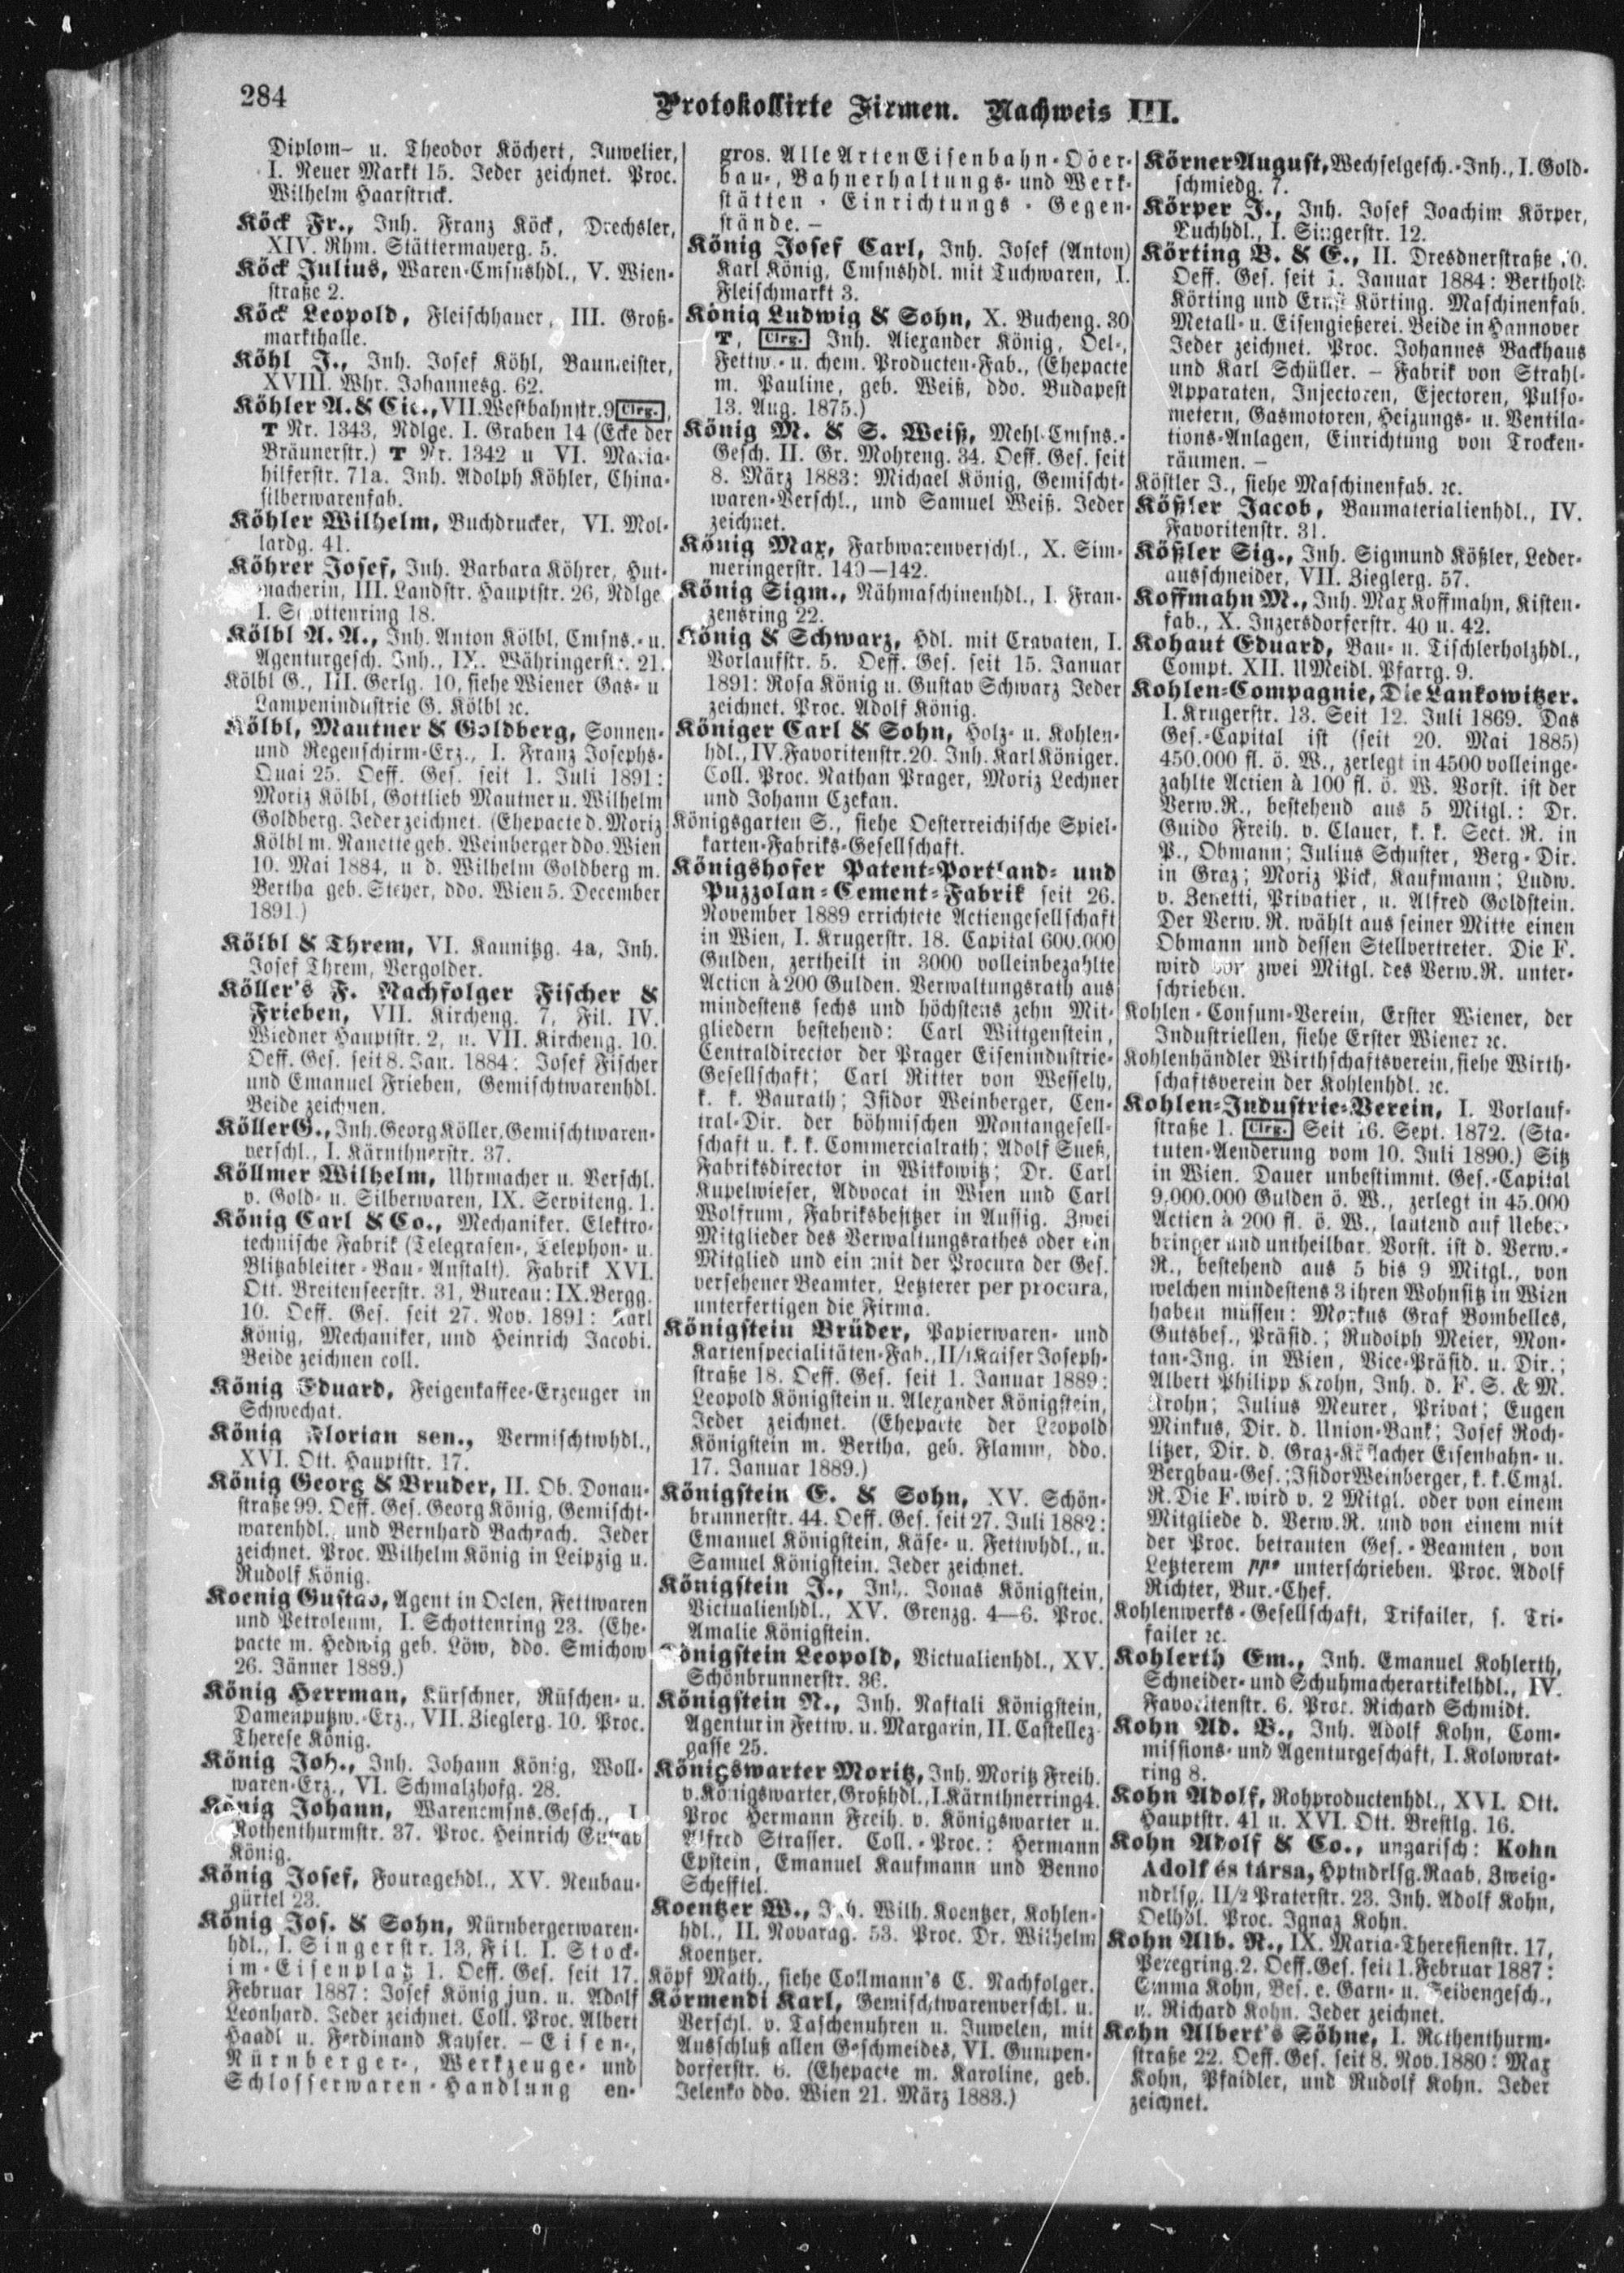 284
Protokollirte Firmen. Nachweis III.
Diplom- u. Theodor Köchert, Juwelier,
I. Neuer Markt 15. Jeder zeichnet. Proc.
Wilhelm Haarstrick.
Köck Fr., Inh. Franz Köck, Drechsler,
XIV. Rhm. Stättermayerg. 5.
Köck Julius, Waren-Cmsnshdl., V. Wien-
straße 2.
Köck Leopold, Fleischhauer, III. Groß-
markthalle.
Köhl J., Inh. Josef Köhl, Baumeister,
XVIII. Whr. Johannesg. 62.
Köhler A. & Cie., VII. Westbahnstr. 9 Clrg.,
T Nr. 1343, Ndlge. I. Graben 14 (Ecke der
Bräunerstr.) T Nr. 1342 u VI. Maria-
hilferstr. 71a. Inh. Adolph Köhler, China-
silberwarenfab.
Köhler Wilhelm, Buchdrucker, VI. Mol-
lardg. 41.
Köhrer Josef, Inh. Barbara Köhrer, Hut-
macherin, III. Landstr. Hauptstr. 26, Ndlge
I. Schottenring 18.
Kölbl A. A., Inh. Anton Kölbl, Cmsns.- u.
Agenturgesch. Inh., IX. Währingerstr. 21.
Kölbl G., III. Gerlg. 10, siehe Wiener Gas- u
Lampenindustrie G. Kölbl ꝛc.
Kölbl, Mautner & Goldberg, Sonnen-
und Regenschirm-Erz., I. Franz Josephs-
Quai 25. Oeff. Ges. seit 1. Juli 1891:
Moriz Kölbl, Gottlieb Mautner u. Wilhelm
Goldberg. Jeder zeichnet. (Ehepacte d. Moriz
Kölbl m. Nanette geb. Weinberger ddo. Wien
10. Mai 1884, u d. Wilhelm Goldberg m.
Bertha geb. Steyer, ddo. Wien 5. December
1891.)
Kölbl & Threm, VI. Kaunitzg. 4a, Inh.
Josef Threm, Vergolder.
Köller's F. Nachfolger Fischer &
Frieben, VII. Kircheng. 7, Fil. IV.
Wiedner Hauptstr. 2, u. VII. Kircheng. 10.
Oeff. Ges. seit 8. Jan. 1884: Josef Fischer
und Emanuel Frieben, Gemischtwarenhdl.
Beide zeichnen.
Köller G., Inh. Georg Köller, Gemischtwaren-
verschl., I. Kärnthnerstr. 37.
Köllmer Wilhelm, Uhrmacher u. Verschl.
v. Gold- u. Silberwaren, IX. Serviteng. 1.
König Carl & Co., Mechaniker. Elektro-
technische Fabrik (Telegrafen-, Telephon- u.
Blitzableiter-Bau-Anstalt). Fabrik XVI.
Ott. Breitenseerstr. 31, Bureau: IX. Bergg.
10. Oeff. Ges. seit 27. Nov. 1891: Karl
König, Mechaniker, und Heinrich Jacobi.
Beide zeichnen coll.
König Eduard, Feigenkaffee-Erzeuger in
Schwechat.
König Florian sen., Vermischtwhdl.,
XVI. Ott. Hauptstr. 17.
König Georg & Bruder, II. Ob. Donau-
straße 99. Oeff. Ges. Georg König, Gemischt-
warenhdl., und Bernhard Bachrach. Jeder
zeichnet. Proc. Wilhelm König in Leipzig u.
Rudolf König.
Koenig Gustav, Agent in Oelen, Fettwaren
und Petroleum, I. Schottenring 23. (Ehe-
pacte m. Hedwig geb. Löw, ddo. Smichow
26. Jänner 1889.)
König Herrman, Kürschner, Rüschen- u.
Damenputzw.-Erz., VII. Zieglerg. 10. Proc.
Therese König.
König Joh., Inh. Johann König, Woll-
waren-Erz., VI. Schmalzhofg. 28.
König Johann, Warencmsns.Gesch., I.
Rothenthurmstr. 37. Proc. Heinrich Gustav
König.
König Josef, Fouragehdl., XV. Neubau-
gürtel 23.
König Jos. & Sohn, Nürnbergerwaren-
hdl., I. Singerstr. 13, Fil. I. Stock-
im-Eisenplatz 1. Oeff. Ges. seit 17.
Februar 1887: Josef König jun. u. Adolf
Leonhard. Jeder zeichnet. Coll. Proc. Albert
Haadl u. Ferdinand Kayser. – Eisen-,
Nürnberger-, Werkzeuge- und
Schlosserwaren-Handlung en-
gros. Alle Arten Eisenbahn-Ober-
bau-, Bahnerhaltungs- und Werk-
stätten-Einrichtungs-Gegen-
stände. –
König Josef Carl, Inh. Josef (Anton)
Karl König, Cmsnshdl. mit Tuchwaren, I.
Fleischmarkt 3.
König Ludwig & Sohn, X. Bucheng. 30
T, Clrg. Inh. Alexander König, Oel-,
Fettw.- u. chem. Producten-Fab., (Ehepacte
m. Pauline, geb. Weiß, ddo. Budapest
13. Aug. 1875.)
König M. & S. Weiß, Mehl-Cmsns.-
Gesch. II. Gr. Mohreng. 34. Oeff. Ges. seit
8. März 1883: Michael König, Gemischt-
waren-Verschl., und Samuel Weiß. Jeder
zeichnet.
König Max, Farbwarenverschl., X. Sim-
meringerstr. 140—142.
König Sigm., Nähmaschinenhdl., I. Fran-
zensring 22.
König & Schwarz, Hdl. mit Cravaten, I.
Vorlaufstr. 5. Oeff. Ges. seit 15. Januar
1891: Rosa König u. Gustav Schwarz Jeder
zeichnet. Proc. Adolf König.
Königer Carl & Sohn, Holz- u. Kohlen-
hdl., IV. Favoritenstr. 20. Inh. Karl Königer.
Coll. Proc. Nathan Prager, Moriz Lechner
und Johann Czekan.
Königsgarten S., siehe Oesterreichische Spiel-
karten-Fabriks-Gesellschaft.
Königshofer Patent-Portland- und
Puzzolan-Cement-Fabrik seit 26.
November 1889 errichtete Actiengesellschaft
in Wien, I. Krugerstr. 18. Capital 600.000
Gulden, zertheilt in 3000 volleinbezahlte
Actien à 200 Gulden. Verwaltungsrath aus
mindestens sechs und höchstens zehn Mit-
gliedern bestehend: Carl Wittgenstein,
Centraldirector der Prager Eisenindustrie-
Gesellschaft; Carl Ritter von Wessely,
k. k. Baurath; Isidor Weinberger, Cen-
tral-Dir. der böhmischen Montangesell-
schaft u. k. k. Commercialrath; Adolf Sueß,
Fabriksdirector in Witkowitz; Dr. Carl
Kupelwieser, Advocat in Wien und Carl
Wolfrum, Fabriksbesitzer in Aussig. Zwei
Mitglieder des Verwaltungsrathes oder ein
Mitglied und ein mit der Procura der Ges.
versehener Beamter, Letzterer per procura,
unterfertigen die Firma.
Königstein Brüder, Papierwaren- und
Kartenspecialitäten-Fab., II/1 Kaiser Joseph-
straße 18. Oeff. Ges. seit 1. Januar 1889:
Leopold Königstein u. Alexander Königstein,
Jeder zeichnet. (Ehepacte der Leopold
Königstein m. Bertha, geb. Flamm, ddo.
17. Januar 1889.)
Königstein E. & Sohn, XV. Schön-
brunnerstr. 44. Oeff. Ges. seit 27. Juli 1882:
Emanuel Königstein, Käse- u. Fettwhdl., u.
Samuel Königstein. Jeder zeichnet.
Königstein J., Inh. Jonas Königstein,
Victualienhdl., XV. Grenzg. 4—6. Proc.
Amalie Königstein.
Königstein Leopold, Victualienhdl., XV.
Schönbrunnerstr. 36.
Königstein N., Inh. Naftali Königstein,
Agentur in Fettw. u. Margarin, II. Castellez-
gasse 25.
Königswarter Moritz, Inh. Moritz Freih.
v. Königswarter, Großhdl., I. Kärnthnerring 4.
Proc Hermann Freih. v. Königswarter u.
Alfred Strasser. Coll.-Proc.: Hermann
Epstein, Emanuel Kaufmann und Benno
Schefftel.
Koentzer W., Inh. Wilh. Koentzer, Kohlen-
hdl., II. Novarag. 53. Proc. Dr. Wilhelm
Koentzer.
Köpf Math., siehe Collmann's C. Nachfolger.
Körmendi Karl, Gemischtwarenverschl. u.
Verschl. v. Taschenuhren u. Juwelen, mit
Ausschluß allen Geschmeides, VI. Gumpen-
dorferstr. 6. (Ehepacte m. Karoline, geb.
Jelenko ddo. Wien 21. März 1883.)
Körner August, Wechselgesch.-Inh., I. Gold-
schmiedg. 7.
Körper J., Inh. Josef Joachim Körper,
Tuchhdl., I. Singerstr. 12.
Körting B. & E., II. Dresdnerstraße
Oeff. Ges. seit 1. Januar 1884: Berthold
Körting und Ernst Körting. Maschinenfab.
Metall- u. Eisengießerei. Beide in Hannover
Jeder zeichnet. Proc. Johannes Backhaus
und Karl Schüller. – Fabrik von Strahl-
Apparaten, Injectoren, Ejectoren, Pulso-
metern, Gasmotoren, Heizungs- u. Ventila-
tions-Anlagen, Einrichtung von Trocken-
räumen. –
Köstler J., siehe Maschinenfab. ꝛc.
Kößler Jacob, Baumaterialienhdl., IV.
Favoritenstr. 31.
Kößler Sig., Inh. Sigmund Kößler, Leder-
ausschneider, VII. Zieglerg. 57.
Koffmahn M., Inh. Max Koffmahn, Kisten-
fab., X. Inzersdorferstr. 40 u. 42.
Kohaut Eduard, Bau- u. Tischlerholzhdl.,
Compt. XII. UMeidl. Pfarrg. 9.
Kohlen-Compagnie, Die Lankowitzer.
I. Krugerstr. 13. Seit 12. Juli 1869. Das
Ges.-Capital ist (seit 20. Mai 1885)
450.000 fl. ö. W., zerlegt in 4500 volleinge-
zahlte Actien à 100 fl. ö. W. Vorst. ist der
Verw.R., bestehend aus 5 Mitgl.: Dr.
Guido Freih. v. Clauer, k. k. Sect. R. in
P., Obmann; Julius Schuster, Berg-Dir.
in Graz; Moriz Pick, Kaufmann; Ludw.
v. Zenetti, Privatier, u. Alfred Goldstein.
Der Verw. R. wählt aus seiner Mitte einen
Obmann und dessen Stellvertreter. Die F.
wird von zwei Mitgl. des Verw.R. unter-
schrieben.
Kohlen-Consum-Verein, Erster Wiener, der
Industriellen, siehe Erster Wiener ꝛc.
Kohlenhändler Wirthschaftsverein, siehe Wirth-
schaftsverein der Kohlenhdl. ꝛc.
Kohlen-Industrie-Verein, I. Vorlauf-
straße 1. Clrg. Seit 16. Sept. 1872. (Sta-
tuten-Aenderung vom 10. Juli 1890.) Sitz
in Wien. Dauer unbestimmt. Ges.-Capital
9,000.000 Gulden ö. W., zerlegt in 45.000
Actien à 200 fl. ö. W., lautend auf Ueber-
bringer und untheilbar. Vorst. ist d. Verw.-
R., bestehend aus 5 bis 9 Mitgl., von
welchen mindestens 3 ihren Wohnsitz in Wien
haben müssen: Markus Graf Bombelles,
Gutsbes., Präsid.; Rudolph Meier, Mon-
tan-Ing. in Wien, Vice-Präsid. u. Dir.;
Albert Philipp Krohn, Inh. d. F. S. & M.
Krohn; Julius Meurer, Privat; Eugen
Minkus, Dir. d. Union-Bank; Josef Roch-
litzer, Dir. d. Graz-Köflacher Eisenbahn- u.
Bergbau-Ges.; Isidor Weinberger, k. k. Cmzl.
R. Die F. wird v. 2 Mitgl. oder von einem
Mitgliede d. Verw.R. und von einem mit
der Proc. betrauten Ges.-Beamten, von
Letzterem ppa unterschrieben. Proc. Adolf
Richter, Bur.-Chef.
Kohlenwerks-Gesellschaft, Trifailer, s. Tri-
failer ꝛc.
Kohlerth Em., Inh. Emanuel Kohlerth,
Schneider- und Schuhmacherartikelhdl., IV.
Favoritenstr. 6. Proc. Richard Schmidt.
Kohn Ad. B., Inh. Adolf Kohn, Com-
missions- und Agenturgeschäft, I. Kolowrat-
ring 8.
Kohn Adolf, Rohproductenhdl., XVI. Ott.
Hauptstr. 41 u. XVI. Ott. Brestlg. 16.
Kohn Adolf & Co., ungarisch: Kohn
Adolf és társa, Hptndrlsg. Raab, Zweig-
ndrlsg. II/2 Praterstr. 23. Inh. Adolf Kohn,
Oelhdl. Proc. Ignaz Kohn.
Kohn Alb. R., IX. Maria-Theresienstr. 17,
Peregring. 2. Oeff. Ges. seit 1. Februar 1887:
Emma Kohn, Bes. e. Garn- u. Seidengesch.,
u. Richard Kohn. Jeder zeichnet.
Kohn Albert's Söhne, I. Rothenthurm-
straße 22. Oeff. Ges. seit 8. Nov. 1880: Max
Kohn, Pfaidler, und Rudolf Kohn. Jeder
zeichnet.